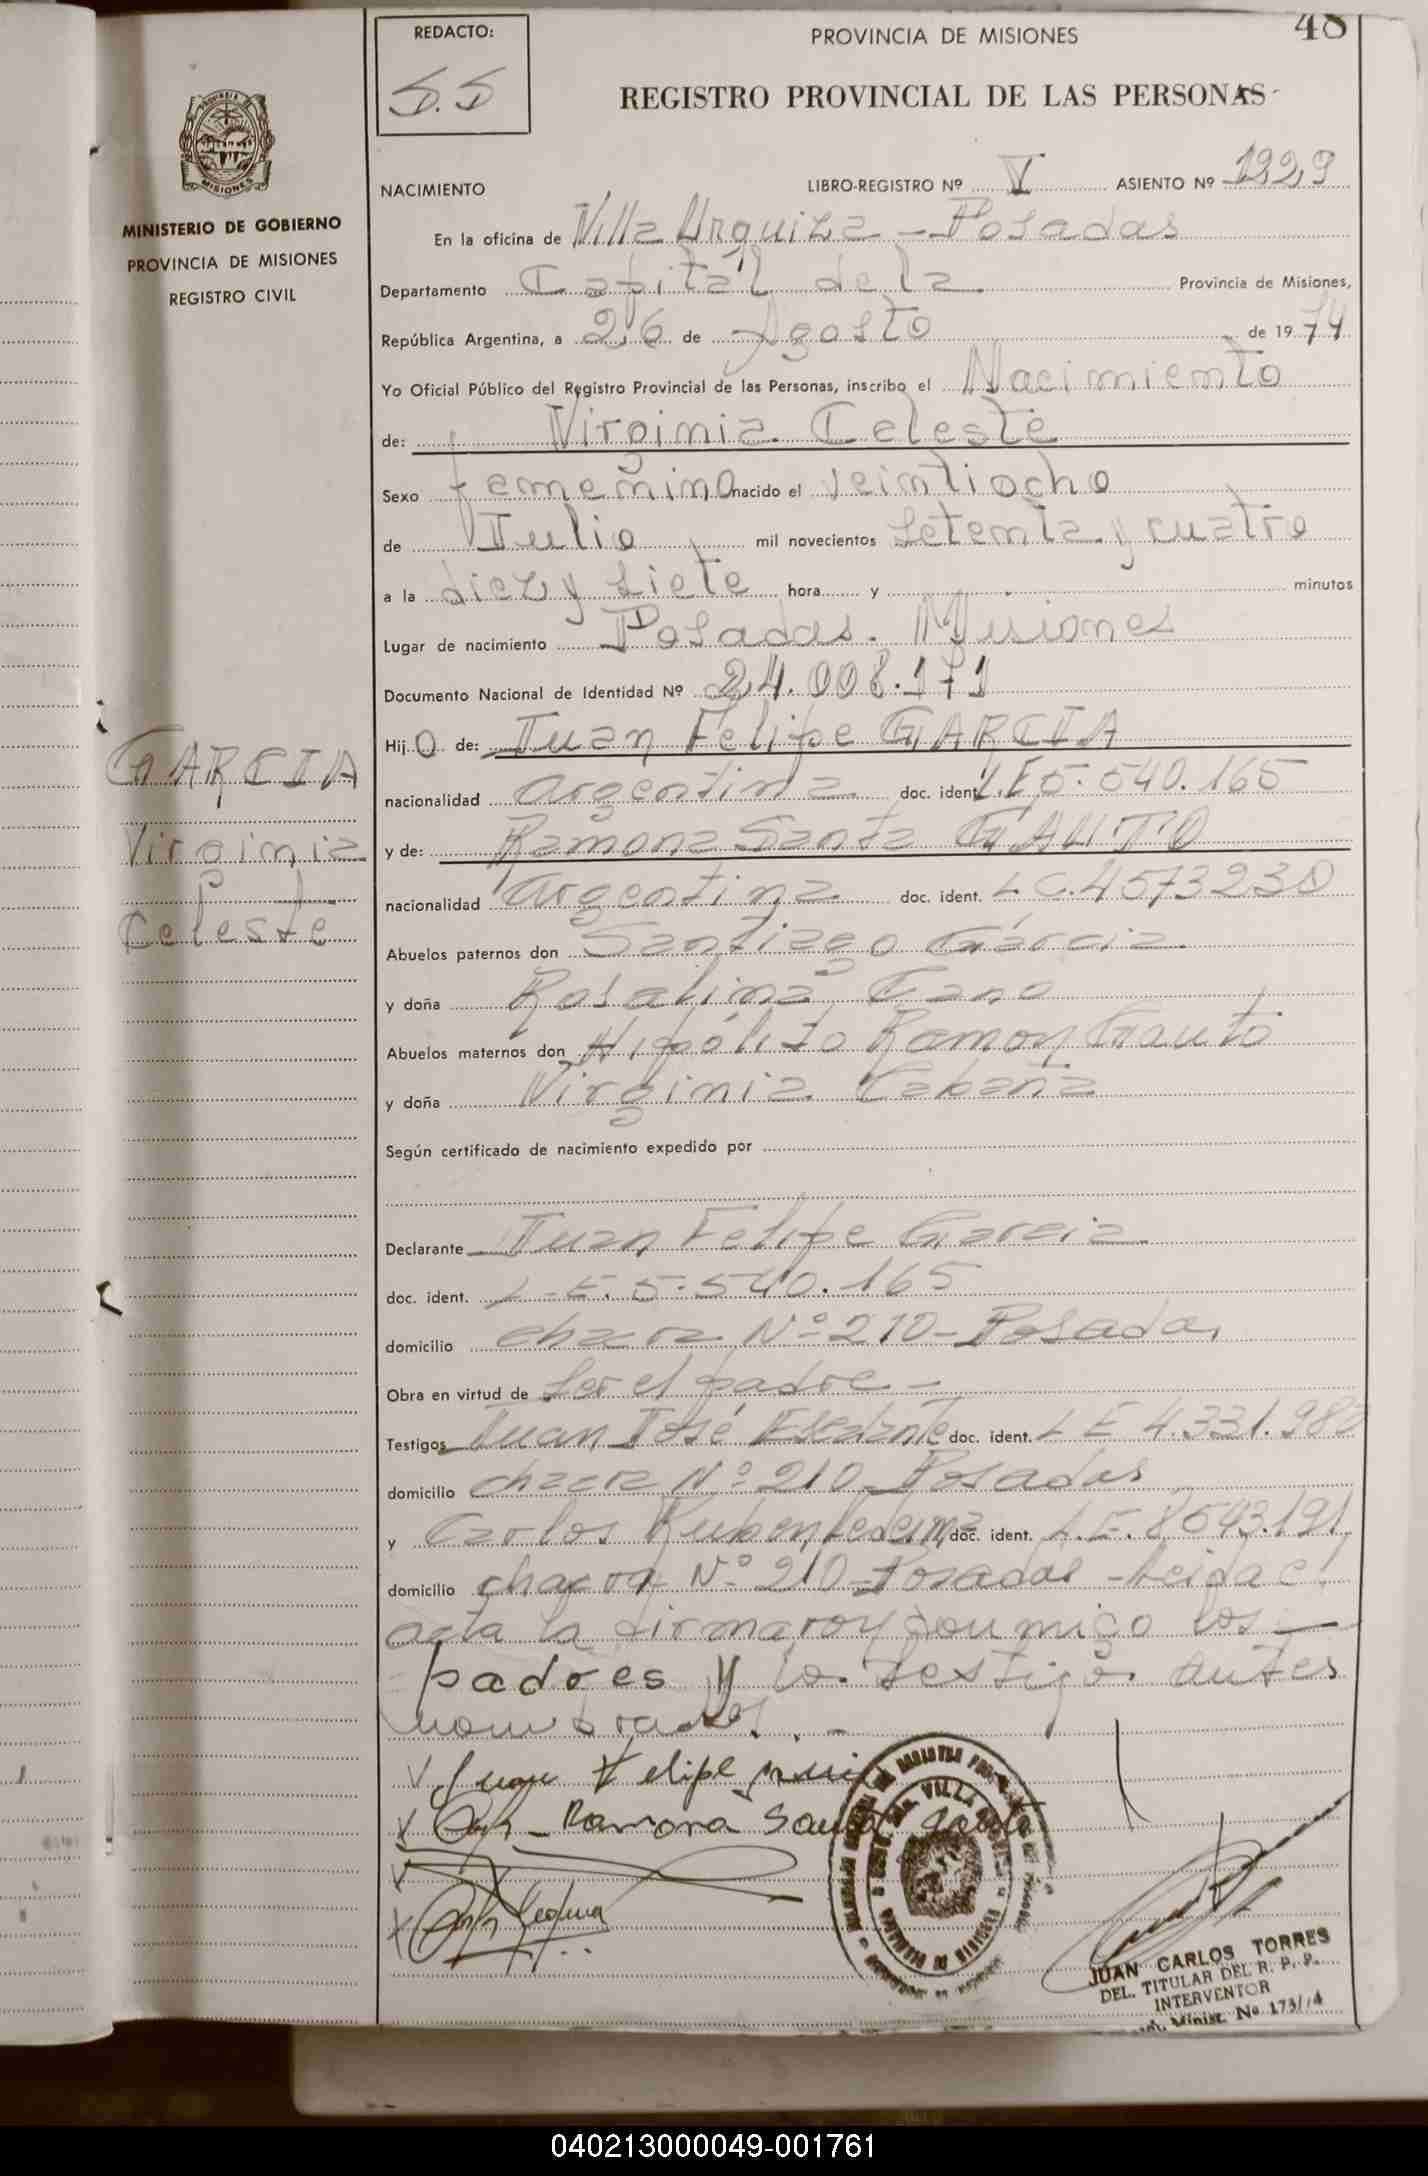 48
REDACTO:
S.S
PROVINCIA DE MISIONES
REGISTRO PROVINCIAL DE LAS PERSONAS
MISIONES
MINISTERIO DE GOBIERNO
PROVINCIA DE MISIONES
REGISTRO CIVIL
NACIMIENTO LIBRO-REGISTRO Nº V ASIENTO Nº 1229
En la oficina de Villa Urquiza - Posadas
Departamento Capital de la Provincia de Misiones,
República Argentina, a 26 de Agosto de 1974
Yo Oficial Público del Registro Provincial de las Personas, inscribo el Nacimiento
de: Virginia Celeste
Sexo femenino nacido el veintiocho
de Julio mil novecientos setenta y cuatro
a la diez y siete hora y minutos
Lugar de nacimiento Posadas. Misiones
Documento Nacional de Identidad Nº 24.008.171
Hijo de: Juan Felipe GARCIA
nacionalidad argentina doc. ident. L.E 5.540.165
y de: Ramona Santa GAUTO
nacionalidad argentina doc. ident. L.C. 4573230
Abuelos paternos don Santiago Garcia
y doña Rosalina Cano
Abuelos maternos don Hipólito Ramon Gauto
y doña Virginia Cabaña
Según certificado de nacimiento expedido por
Declarante Juan Felipe Garcia
doc. ident. L.E. 5.540.165
domicilio chacra Nº 210 - Posadas
Obra en virtud de ser el padre -
Testigos Juan José Escalante doc. ident. L E 4.331.980
domicilio chacra Nº 210 Posadas
y Carlos Ruben Ledesma doc. ident. L.E. 8543.191
domicilio chacra Nº 210 - Posadas - Leida el
acta la firmaron conmigo los
padres y los testigos antes
nombrados. -
GARCIA
Virginia
Celeste
Juan Felipe
Ramona Santa Gauto
VILLA
JUAN CARLOS TORRES
DEL. TITULAR DEL R. P. P.
INTERVENTOR
Minist. Nº 173/74
040213000049-001761